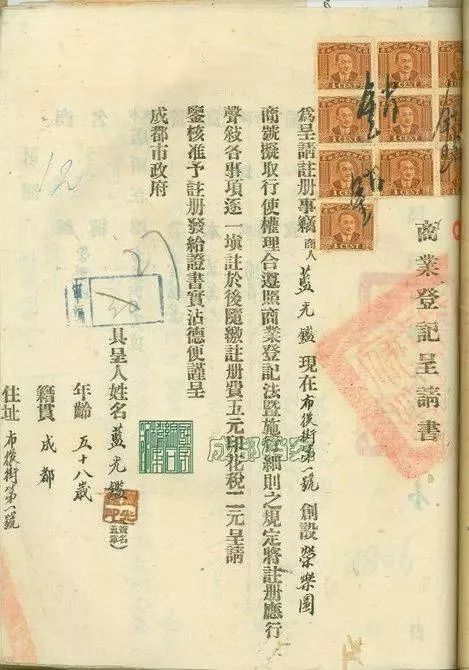 商業登記呈請書
為呈請註册事竊商人藍光鑑現在布後街第一號創設榮樂園
商號擬取行使權理合遵照商業登記法暨施行細則之規定將註册應行
聲敍各事項逐一填註於後隨繳註册費五元印花稅二元呈請
鑒核准予註册發給證書實沾德便謹呈
成都市政府
具呈人姓名藍光鑑(簽名蓋章)
年齡五十八歲
籍貫成都
住址布後街第一號
1 CENT
1 CENT
1 CENT
1 CENT
1 CENT
1 CENT
1 CENT